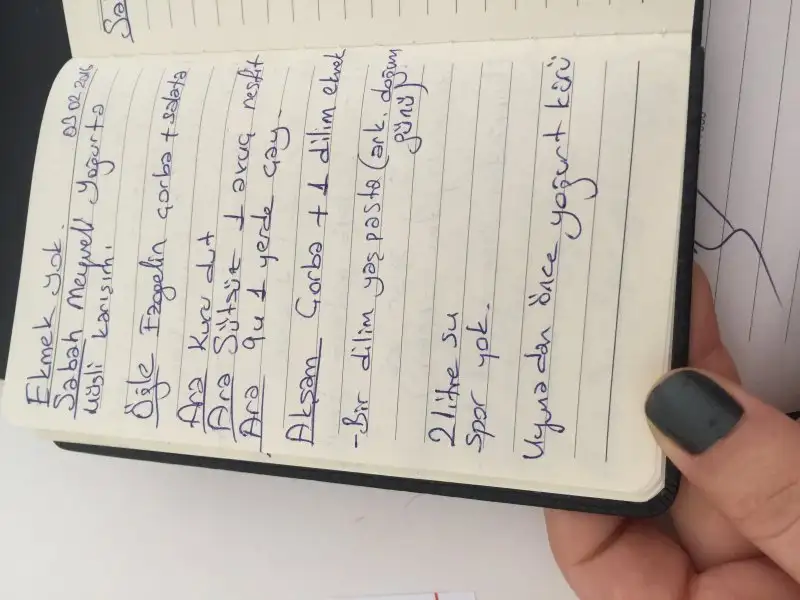 03.02.2016
Ekmek yok.
Sabah Meyveli yoğurta
müsli karışımı
Öğle Ezogelin çorba + salata
Ara Kuru dut
Ara Sütsüz 1 avuç nesfit
Ara 9u 1 yerde çay.
Akşam Çorba + 1 dilim ekmek
- Bir dilim yaş pasta (ark. doğum
günü)
2 litre su
Spor yok.
Uyumadan önce yoğurt kürü
Sa